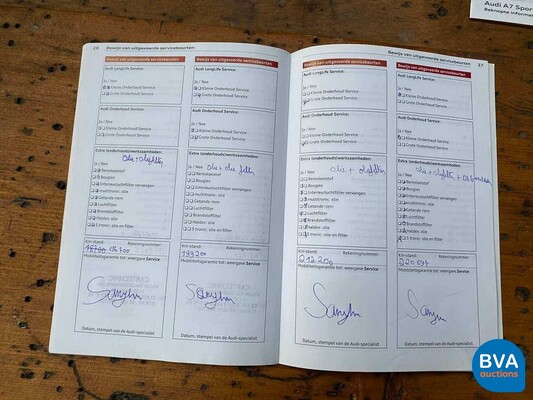 Audi A7 Spor
Beknopte informat
26
Bewijs van uitgevoerde servicebeurten
Bewijs van uitgevoerde servicebeurten
27
Bewijs van uitgevoerde servicebeurten
Audi LongLife Service:
Ja / Nee
Kleine Onderhoud Service
Grote Onderhoud Service
Audi Onderhoud Service:
Ja / Nee
Kleine Onderhoud Service
Grote Onderhoud Service
Extra (onderhouds)werkzaamheden:
olie + oliefilter
Ja / Nee
Remvloeistof
Bougies
Interieurluchtfilter vervangen
multitronic: olie
Getande riem
Luchtfilter
Brandstoffilter
Haldex: olie
S tronic: olie en filter
Km-stand:
Rekeningnummer:
Mobiliteitsgarantie tot: weergave Service
Datum, stempel van de Audi-specialist
Bewijs van uitgevoerde servicebeurten
Audi LongLife Service:
Ja / Nee
Kleine Onderhoud Service
Grote Onderhoud Service
Audi Onderhoud Service:
Ja / Nee
Kleine Onderhoud Service
Grote Onderhoud Service
Extra (onderhouds)werkzaamheden:
olie + olie filter
Ja / Nee
Remvloeistof
Bougies
Interieurluchtfilter vervangen
multitronic: olie
Getande riem
Luchtfilter
Brandstoffilter
Haldex: olie
S tronic: olie en filter
Km-stand:
Rekeningnummer:
199200
Mobiliteitsgarantie tot: weergave Service
Datum, stempel van de Audi-specialist
Bewijs van uitgevoerde servicebeurten
Audi LongLife Service:
Ja / Nee
Kleine Onderhoud Service
Grote Onderhoud Service
Audi Onderhoud Service:
Ja / Nee
Kleine Onderhoud Service
Grote Onderhoud Service
Extra (onderhouds)werkzaamheden:
olie + oliefilter
Ja / Nee
Remvloeistof
Bougies
Interieurluchtfilter vervangen
multitronic: olie
Getande riem
Luchtfilter
Brandstoffilter
Haldex: olie
S tronic: olie en filter
Km-stand:
Rekeningnummer:
Mobiliteitsgarantie tot: weergave Service
Datum, stempel van de Audi-specialist
Bewijs van uitgevoerde servicebeurten
Audi LongLife Service:
Ja / Nee
Kleine Onderhoud Service
Grote Onderhoud Service
Audi Onderhoud Service:
Ja / Nee
Kleine Onderhoud Service
Grote Onderhoud Service
Extra (onderhouds)werkzaamheden:
olie + oliefilter +
Ja / Nee
Remvloeistof
Bougies
Interieurluchtfilter vervangen
multitronic: olie
Getande riem
Luchtfilter
Brandstoffilter
Haldex: olie
S tronic: olie en filter
Km-stand:
Rekeningnummer:
Mobiliteitsgarantie tot: weergave Service
Datum, stempel van de Audi-specialist
BVA
auctions